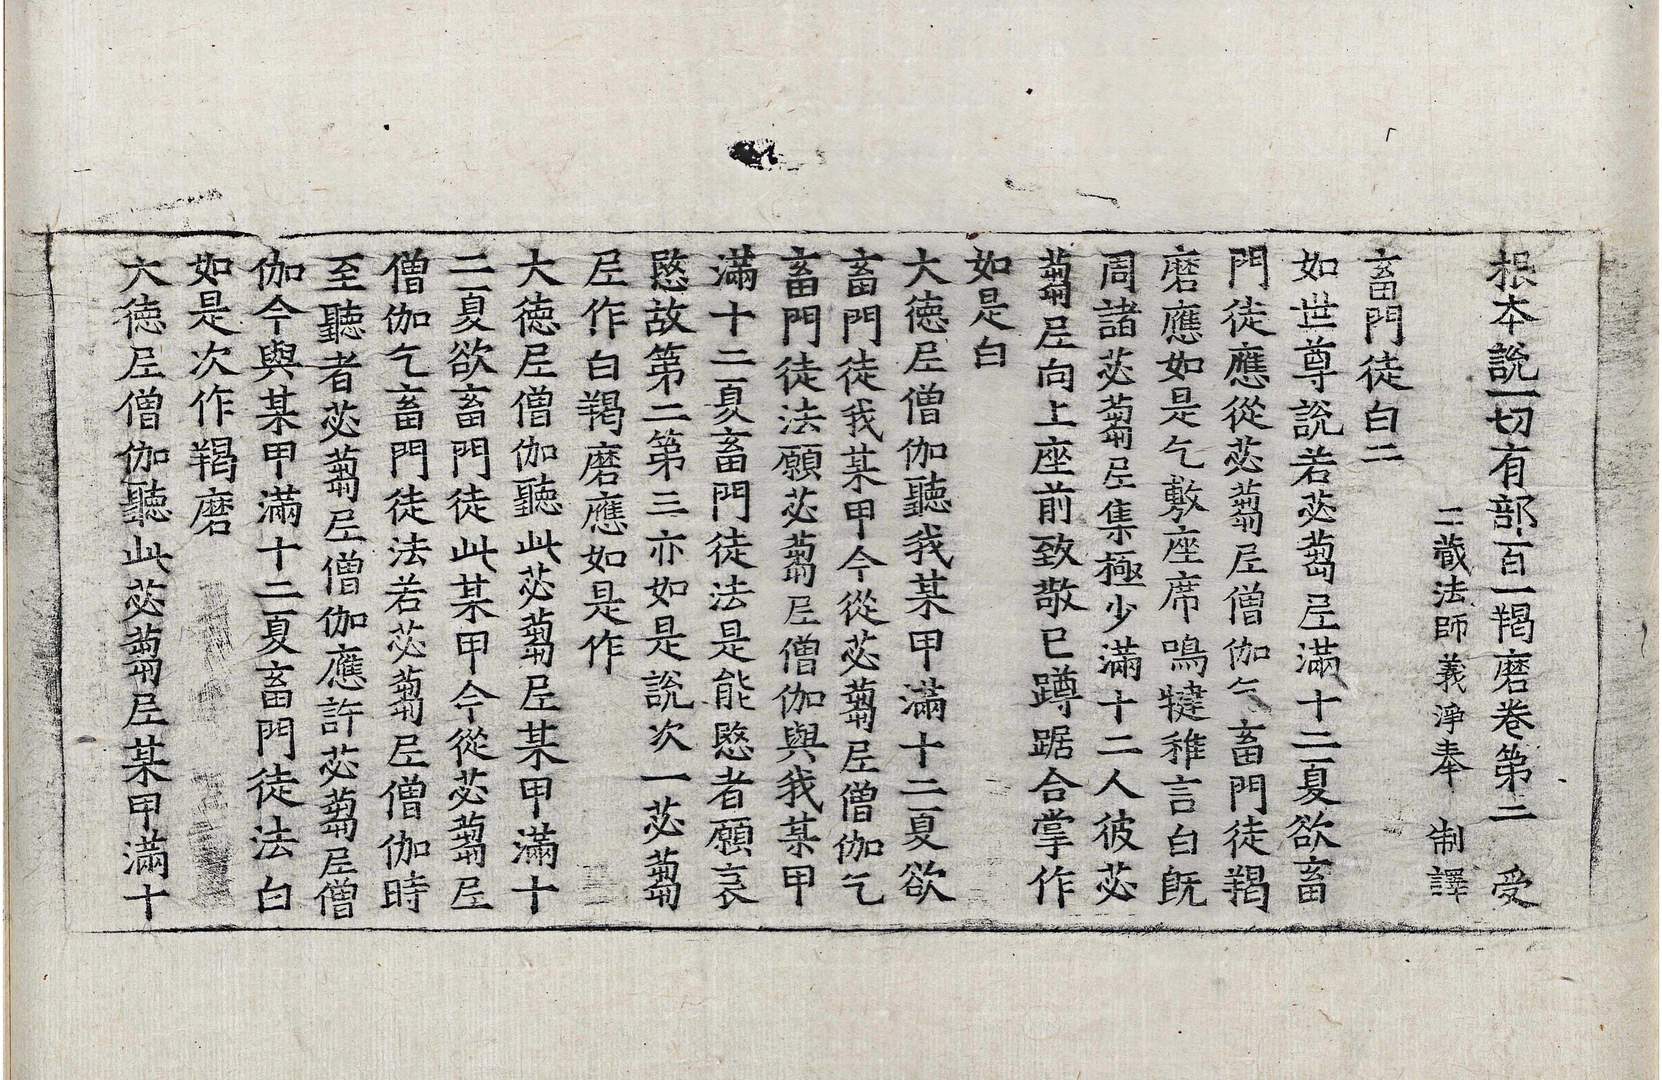 根本說一切有部百一羯磨卷第二 受
三藏法師義淨奉 制譯
畜門徒白二
如世尊說若苾蒭尼滿十二夏欲畜
門徒應從苾蒭尼僧伽乞畜門徒羯
磨應如是乞敷座席鳴揵稚言白旣
周諸苾蒭尼集極少滿十二人彼苾
蒭尼向上座前致敬已蹲踞合掌作
如是白
大德尼僧伽聽我某甲滿十二夏欲
畜門徒我某甲今從苾蒭尼僧伽乞
畜門徒法願苾蒭尼僧伽與我某甲
滿十二夏畜門徒法是能愍者願哀
愍故第二第三亦如是說次一苾蒭
尼作白羯磨應如是作
大德尼僧伽聽此苾蒭尼某甲滿十
二夏欲畜門徒此某甲今從苾蒭尼
僧伽乞畜門徒法若苾蒭尼僧伽時
至聽者苾蒭尼僧伽應許苾蒭尼僧
伽今與某甲滿十二夏畜門徒法白
如是次作羯磨
大德尼僧伽聽此苾蒭尼某甲滿十